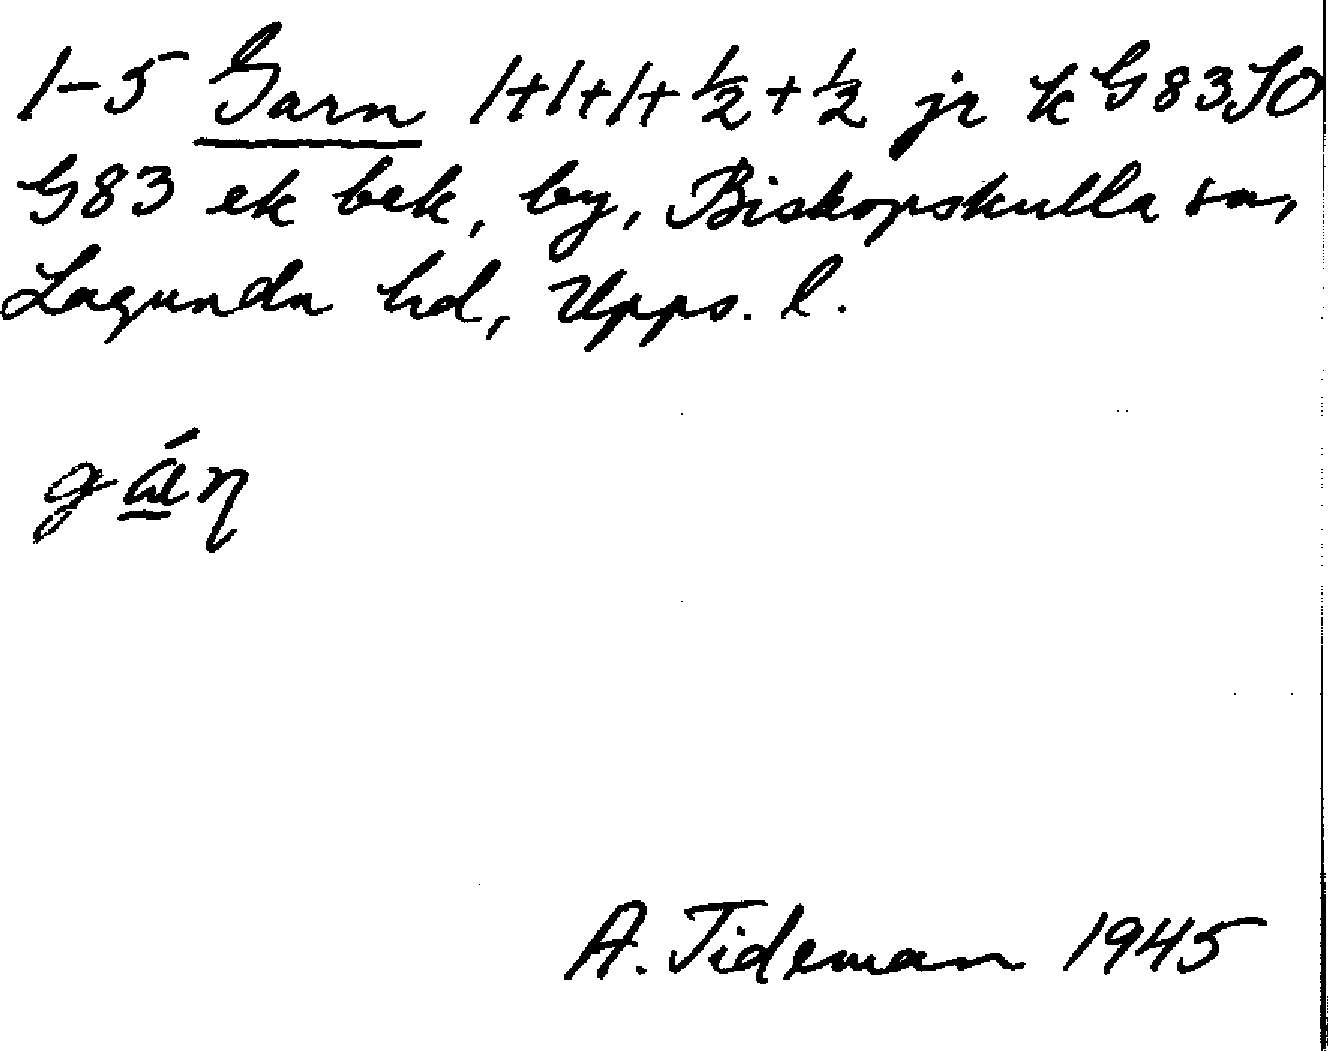 1-5 Garn 1+1+1+½+½ jr k G83SO
G83 ek bek, by, Biskopskulla sn,
Lagunda hd, Upps. l.
gá̱ɳ
A. Tideman 1945